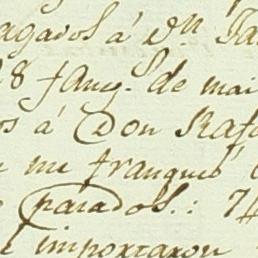 agados á Dn
8 fang.s de mai
os á Don Rafa
me franqueó
parados.: 74
importaron